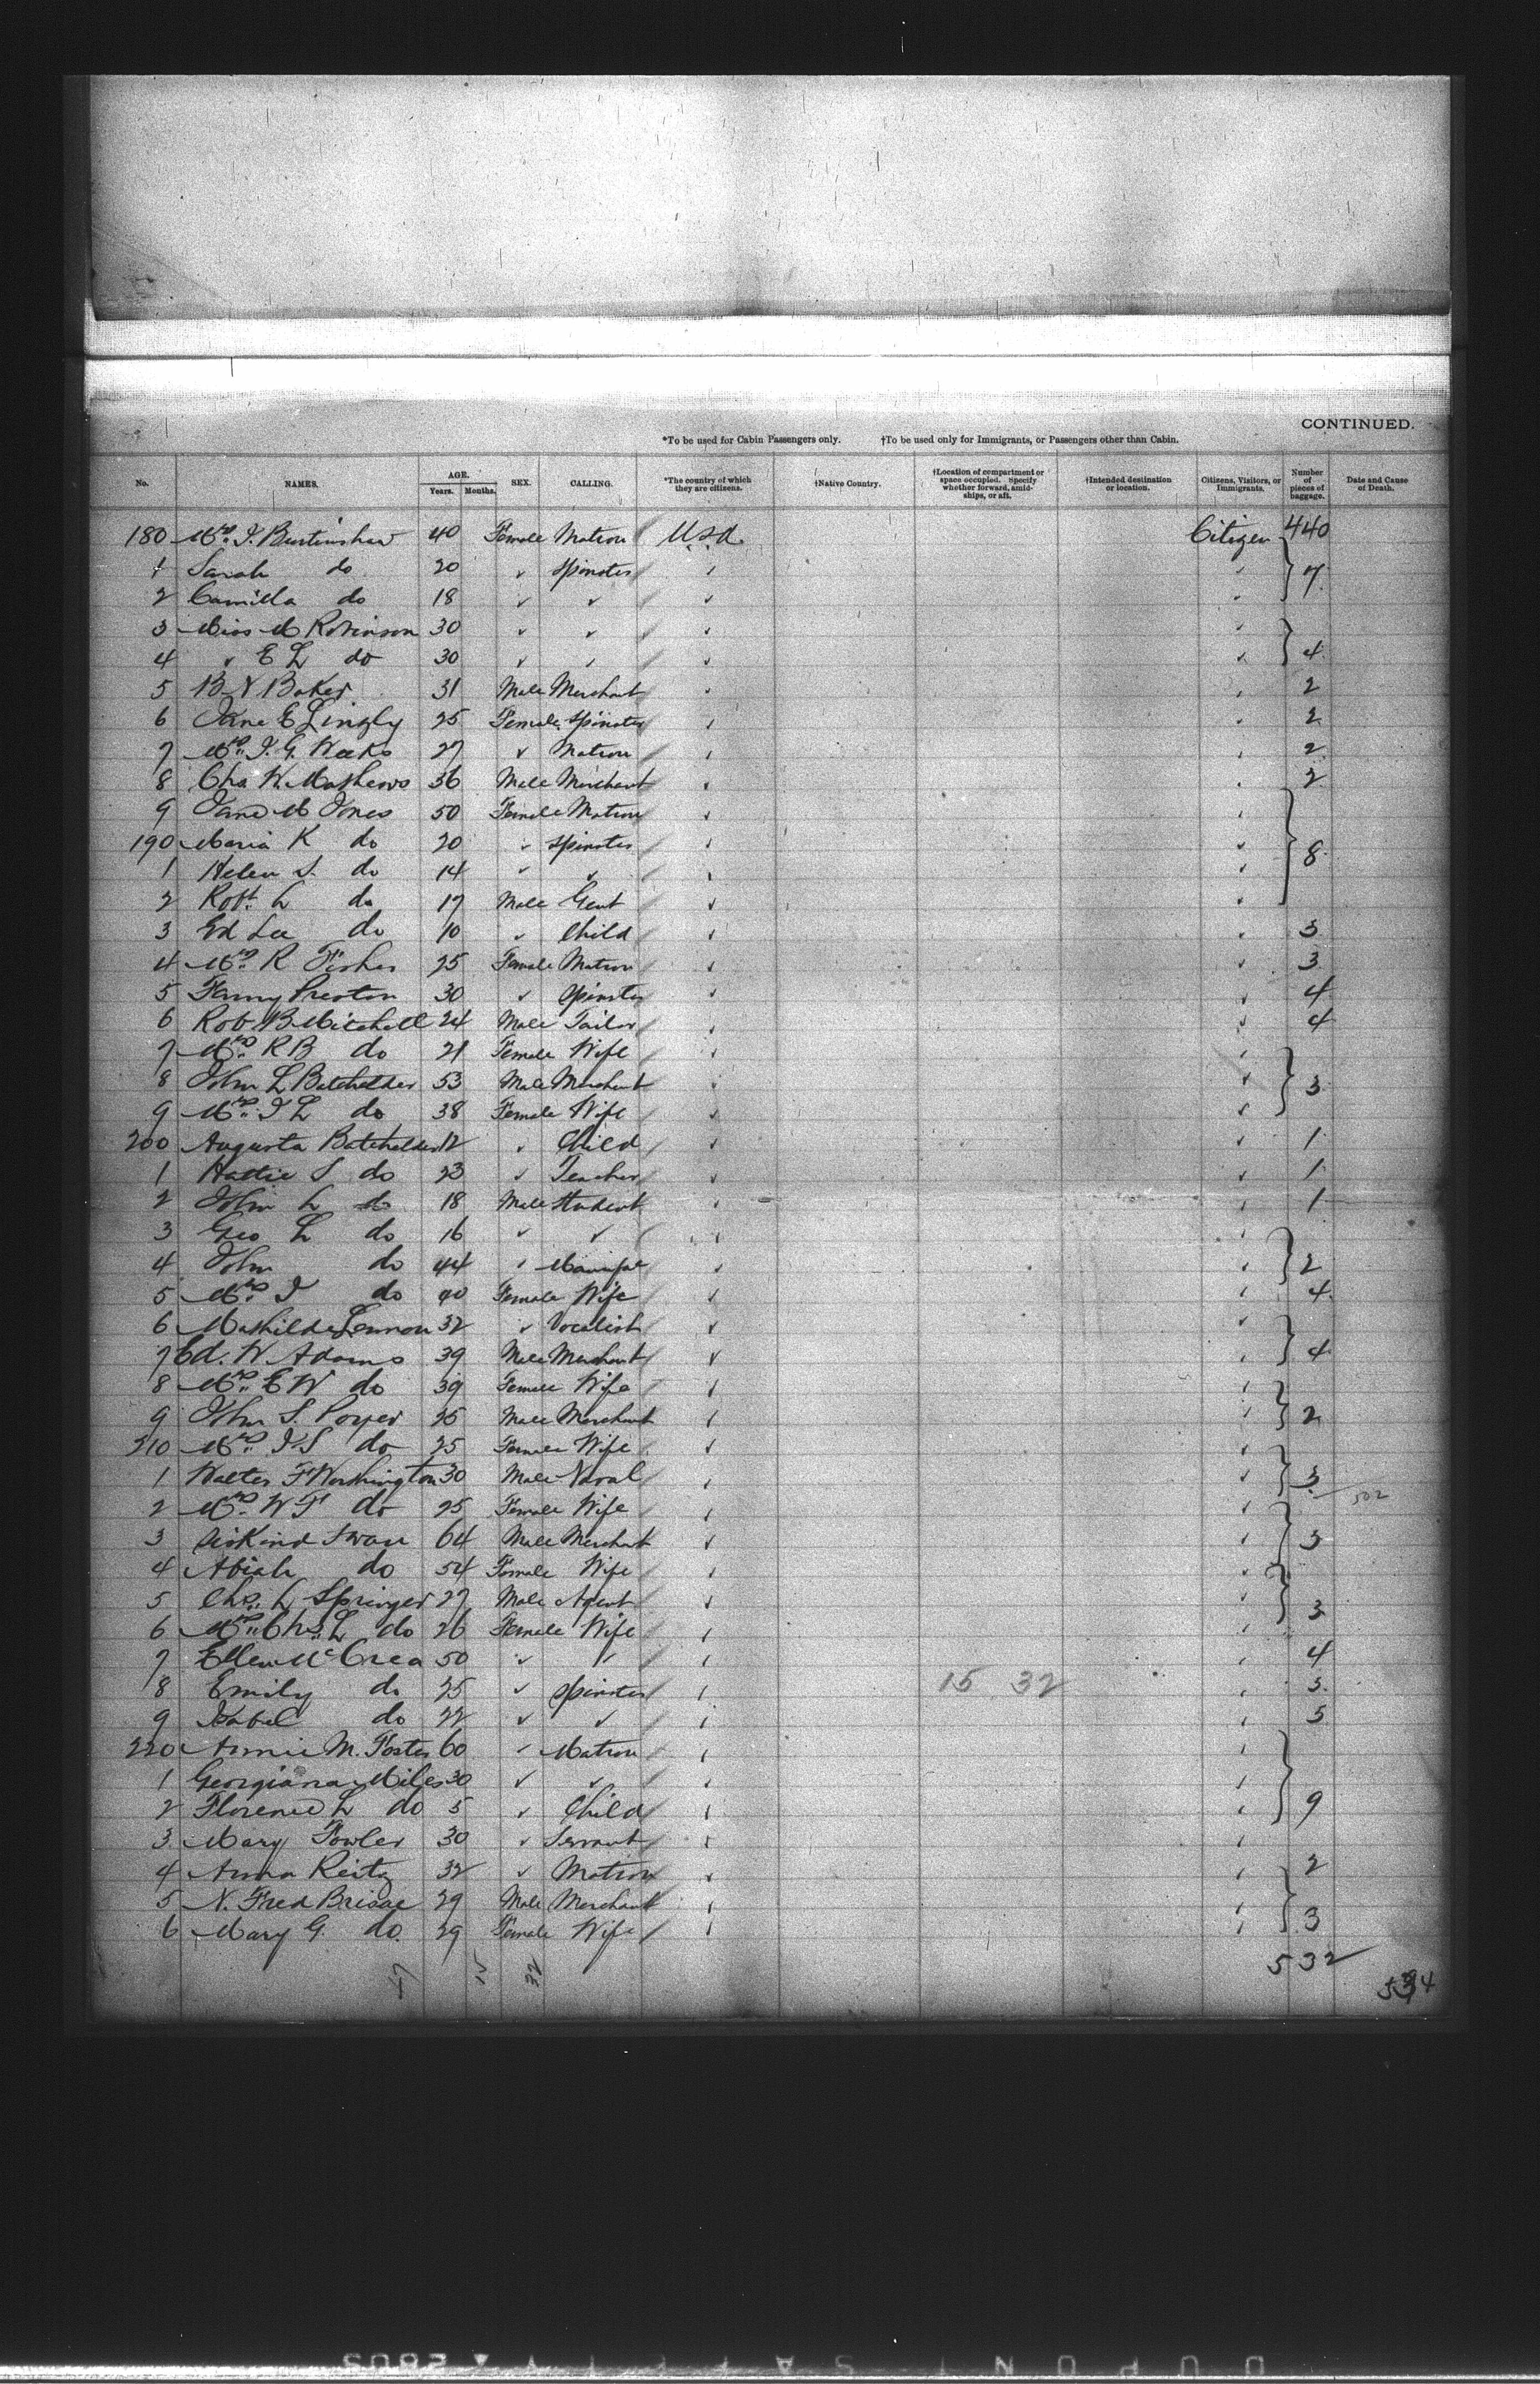 CONTINUED.
*To be used for Cabin Passengers only. †To be used only for Immigrants, or Passengers other than Cabin.
No. NAMES. AGE. Years. Months. SEX. CALLING. *The country of which they are citizens. †Native Country. †Location of compartment or space occupied. Specify whether forward, amidships, or aft. †Intended destination or location. Citizens, Visitors, or Immigrants. Number of pieces of baggage. Date and Cause of Death.
180 Mrs. J. 40 Female Matron Usa. Citizen 440
1 Sarah do 20 " Spinster " " 7
2 Camilla do 18 " " " "
3 Miss M Robinson 30 " " " "
4 " E L do 30 " " " " 4
5 B N Baker 31 Male Merchant " " 2
6 Jane E Lingly 25 Female Spinster " " 2
7 Mrs. J. G. Weeks 27 " Matron " " 2
8 Chs. W. Mathews 36 Male Merchant " " 2
9 Jane M Jones 50 Female Matron " "
190 Maria K do 20 " Spinster " " 8
1 Helen S. do 14 " " " "
2 Robt. L do 17 Male Gent " "
3 Ed Lee do 10 " Child " " 3
4 Mrs. R Fisher 25 Female Matron " " 3
5 Fanny Preston 30 " Spinster " " 4
6 Rob. B Mitchell 24 Male Tailor " " 4
7 Mrs. R B do 21 Female Wife " "
8 John L Batchelder 53 Male Merchant " " 3
9 Mrs. J L do 38 Female Wife " "
200 Augusta Batchelder 12 " Child " " 1
1 Hattie S do 23 " Teacher " " 1
2 John L do 18 Male Student " " 1
3 Geo L do 16 " " " "
4 John do 44 " " " 2
5 Mrs. J do 40 Female Wife " " 4
6 Mathilde Lennon 32 " Vocalist " "
7 Ed. W Adams 39 Male Merchant " " 4
8 Mrs. E W do 39 Female Wife " "
9 John S. Poyer 25 Male Merchant " " 2
210 Mrs. J. S do 25 Female Wife " "
1 Walter F Worthington 30 Male Naval " " 3 502
2 Mrs. W F do 25 Female Wife " "
3 Swan 64 Male Merchant " " 3
4 Abiah do 54 Female Wife " "
5 Chs. L Springer 27 Male Agent " " 3
6 Mrs. Chs. L do 26 Female Wife " "
7 Ellen McCrea 50 " " " " 4
8 Emily do 25 " Spinster " 15 32 " 3
9 Isabel do 22 " " " " 5
220 Annie M. Foster 60 " Matron " "
1 Georgiana Miles 30 " " " "
2 Florence L do 5 " Child " " 9
3 Mary Fowler 30 " Servant " "
4 Anna Reitz 32 " Matron " " 2
5 N. Fred Brisac 29 Male Merchant " "
6 Mary G. do. 29 Female Wife " " 3
47 15 32 532
534
DUPONT SAFETY